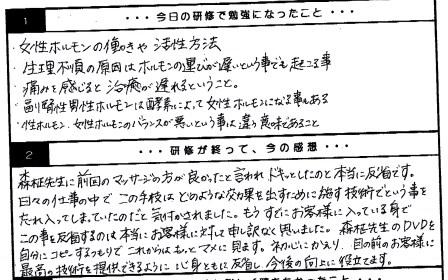 1 ・・・今日の研修で勉強になったこと・・・
・女性ホルモンの働きや 活性方法
・生理不順の原因はホルモンの運びが遅いという事でも起こる事
・痛みを感じると治癒が遅れるということ。
・副腎性男性ホルモンは酵素によって女性ホルモンになる事もある
・性ホルモン、女性ホルモンのバランスが悪いという事は違う意味であること
2 ・・・研修が終って、今の感想・・・
森柾先生に前回のマッサージの方が良かったと言われドキッとしたのと本当に反省です。
日々の仕事の中で この手技は どのような効果を出すために施す技術でという事を
たれ入ってしまっていたのだと気付かされました。もうすでにお客様に入っている身で
この事を反省するのは本当にお客様に対して申し訳なく思いました。森柾先生のDVDを
自分にコピーするつもりで これからはもっとマメに見ます。初心にかえり、目の前のお客様に
最高の技術を提供できるように 心身ともに反省し 今後の向上に役立てます。